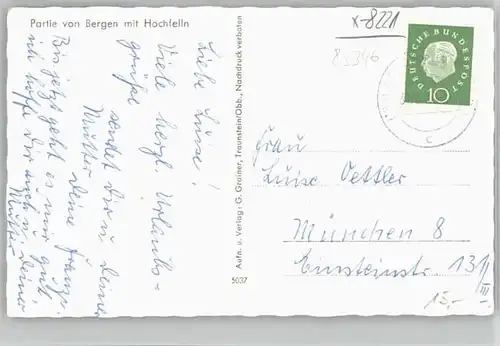 Partie von Bergen mit Hochfelln
x-8221
83346
DEUTSCHE BUNDESPOST
10
Liebe Luise!
Viele herzl. Urlaubs-
grüße sendet Dir u. Deiner
Mutter Deine Franzi.
Bis jetzt geht es mir gut,
ich hoffe Dir auch u. Deiner
Mutter
Aufn. u. Verlag: G. Greiner, Traunstein Obb., Nachdruck verboten
5037
Frau
Luise Oettler
München 8
Einsteinstr. 131/III
15,-